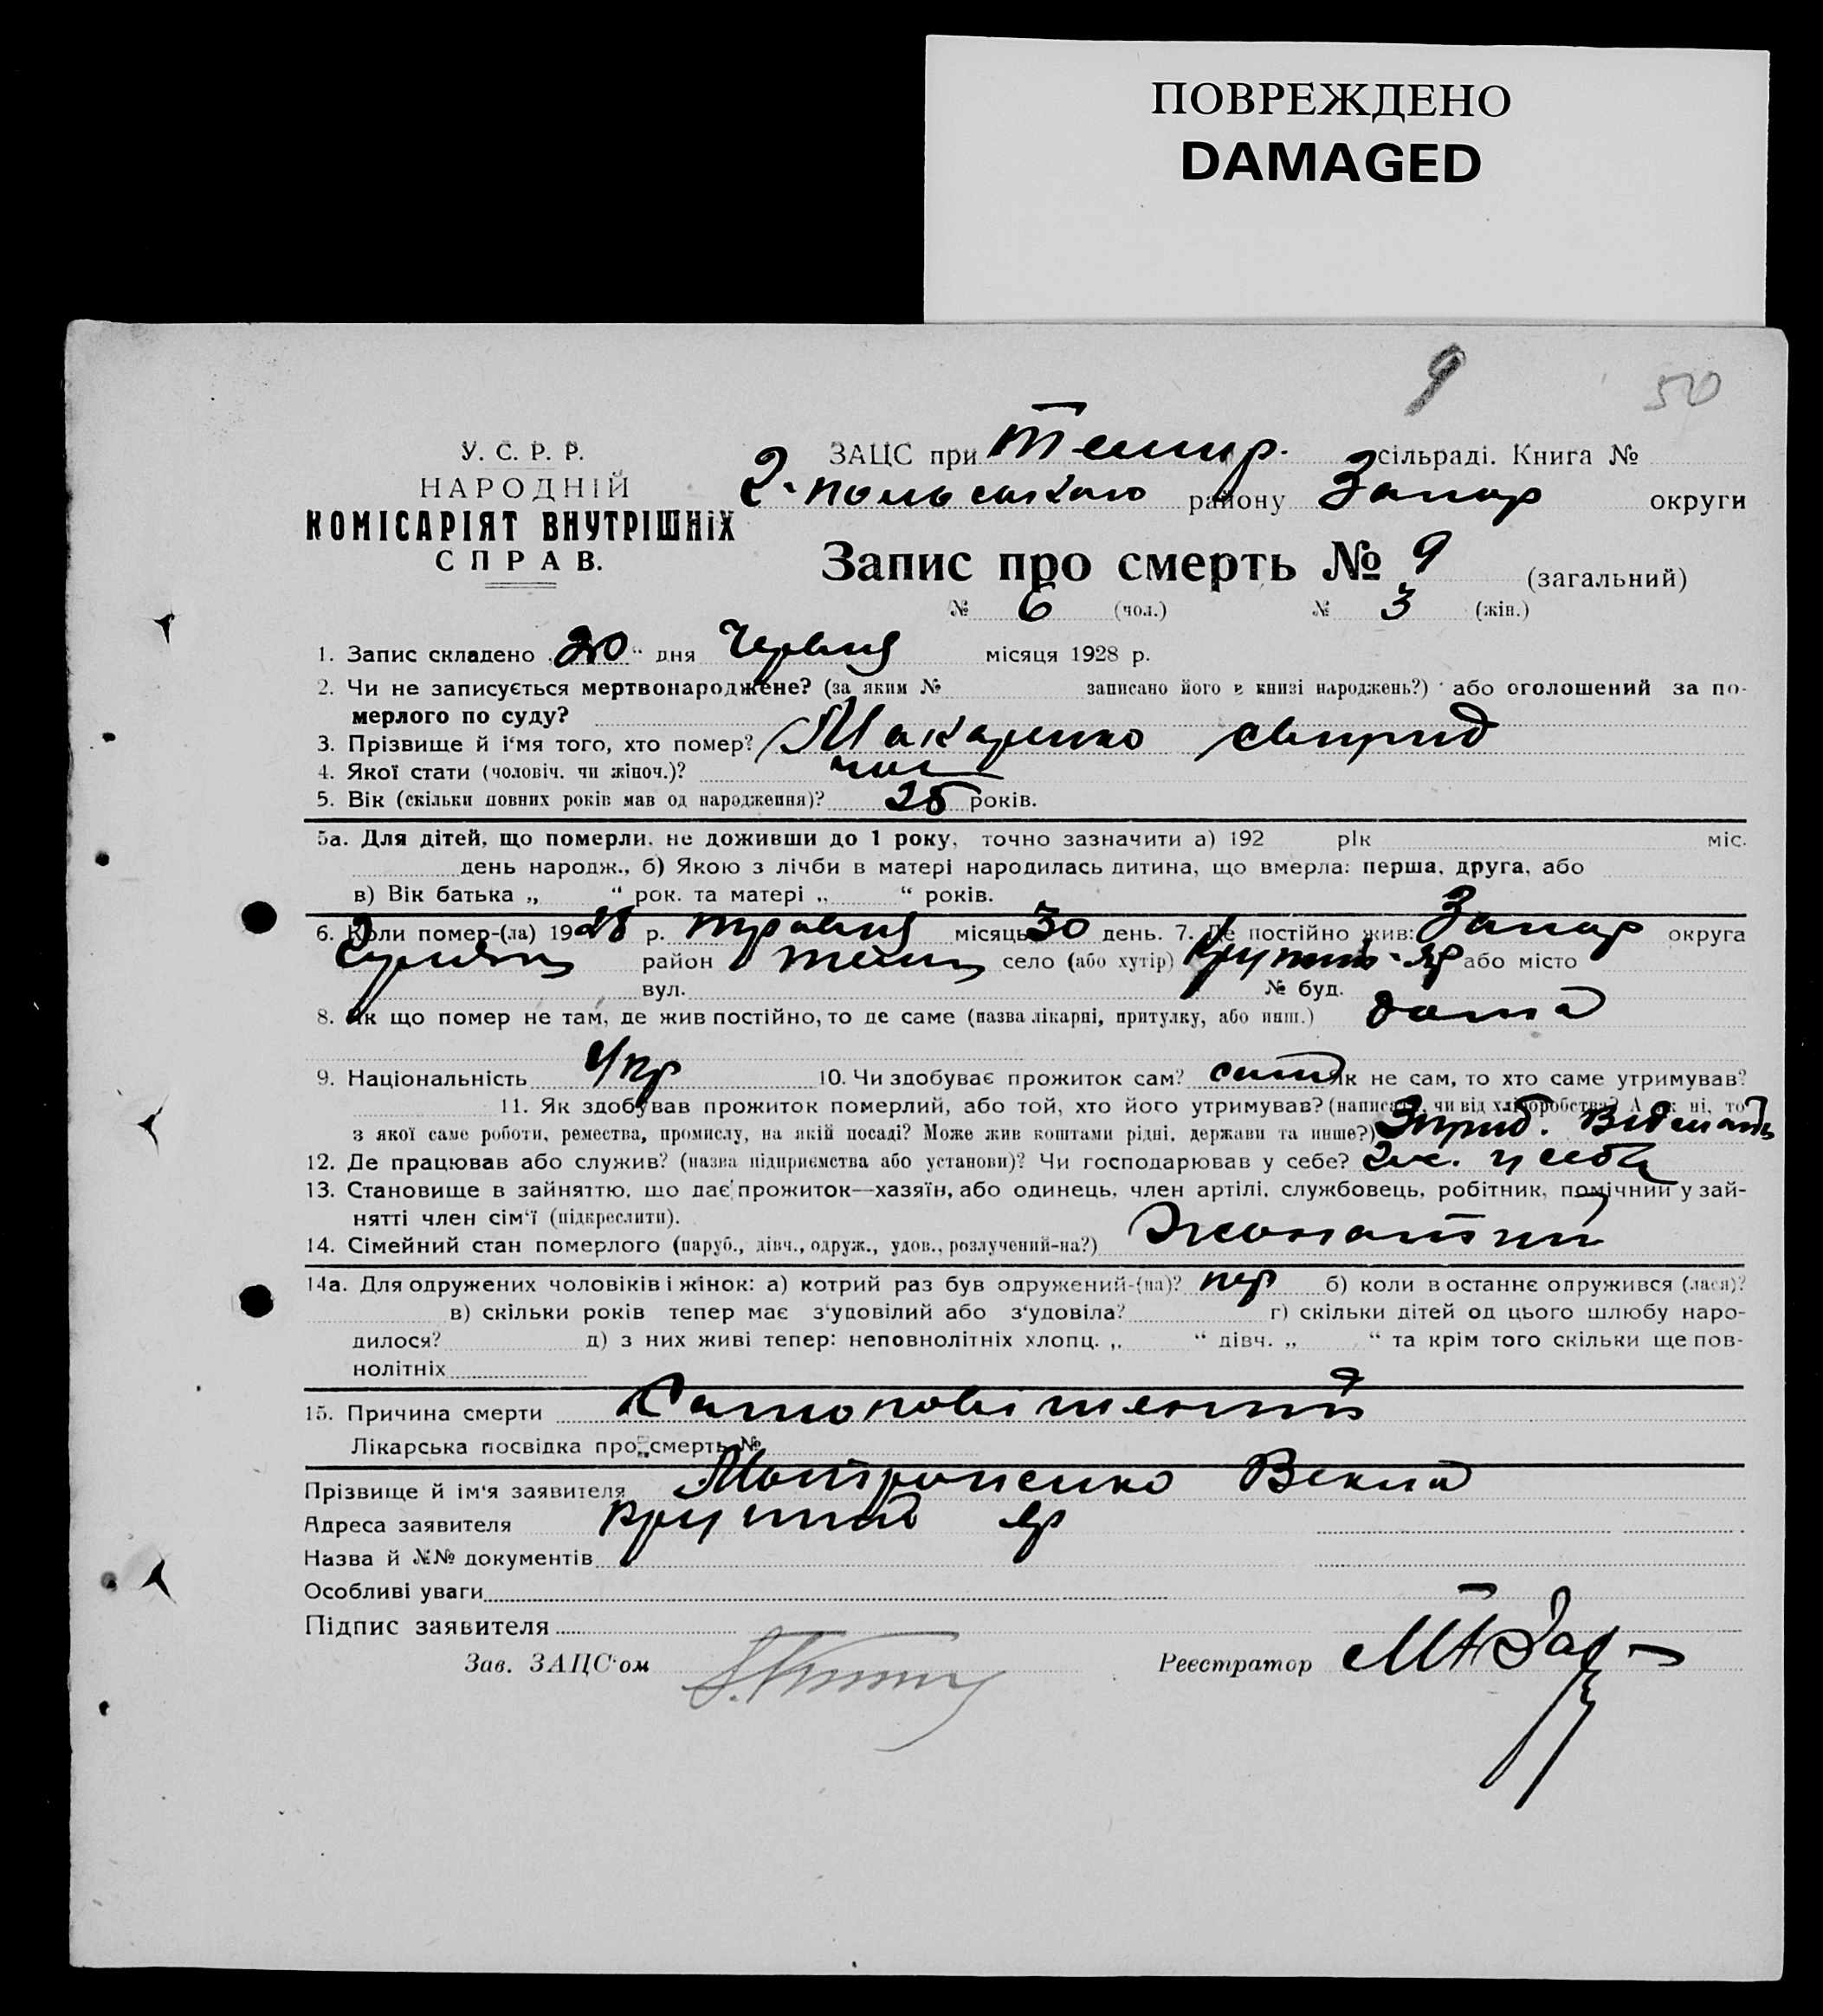 ПОВРЕЖДЕНО
DAMAGED
9
50
У. С. Р. Р.
НАРОДНІЙ
КОМІСАРІЯТ ВНУТРІШНІХ
СПРАВ.
ЗАЦС при Темир. сільраді. Книга №
2-польського району Запор округи
Запис про смерть № 9 (загальний)
№ 6 (чол.) № 3 (жін.)
1. Запис складено „20“ дня Червня місяця 1928 р.
2. Чи не записується мертвонароджене? (за яким № записано його в книзі народжень?) або оголошений за по-
мерлого по суду?
3. Прізвище й і‘мя того, хто помер? Макаренко Свирид
4. Якої стати (чоловіч. чи жіноч.)? чол
5. Вік (скільки повних років мав од народження)? 25 років.
5а. Для дітей, що померли, не доживши до 1 року, точно зазначити а) 192 рік міс.
день народж., б) Якою з лічби в матері народилась дитина, що вмерла: перша, друга, або
в) Вік батька „ “ рок. та матері „ “ років.
6. Коли помер-(ла) 1928 р. травня місяць 30 день. 7. Де постійно жив: Запор округа
район село (або хутір) Крутий-Яр або місто
вул. № буд.
8. Як що помер не там, де жив постійно, то де саме (назва лікарні, притулку, або инш.) дома
9. Національність Укр 10. Чи здобуває прожиток сам? сам Як не сам, то хто саме утримував?
11. Як здобував прожиток померлий, або той, хто його утримував? (написати, чи від хліборобства? А як ні, то
з якої саме роботи, ремества, промислу, на якій посаді? Може жив коштами рідні, держави та инше?) Від
12. Де працював або служив? (назва підприємства або установи)? Чи господарював у себе? у себе
13. Становище в зайняттю, що дає прожиток—хазяїн, або одинець, член артілі, службовець, робітник, помічний у зай-
нятті член сім‘ї (підкреслити).
14. Сімейний стан померлого (паруб., дівч., одруж., удов., розлучений-на?) Жонатий
14а. Для одружених чоловіків і жінок: а) котрий раз був одружений-(на)? пер б) коли в останнє одружився (лася)?
в) скільки років тепер має з‘удовілий або з‘удовіла? г) скільки дітей од цього шлюбу наро-
дилося? д) з них живі тепер: неповнолітніх хлопц. „ “ дівч. „ “ та крім того скільки ще пов-
нолітніх
15. Причина смерти
Лікарська посвідка про смерть №
Прізвище й ім‘я заявителя
Адреса заявителя Крутий Яр
Назва й №№ документів
Особливі уваги
Підпис заявителя
Зав. ЗАЦС‘ом Реєстратор